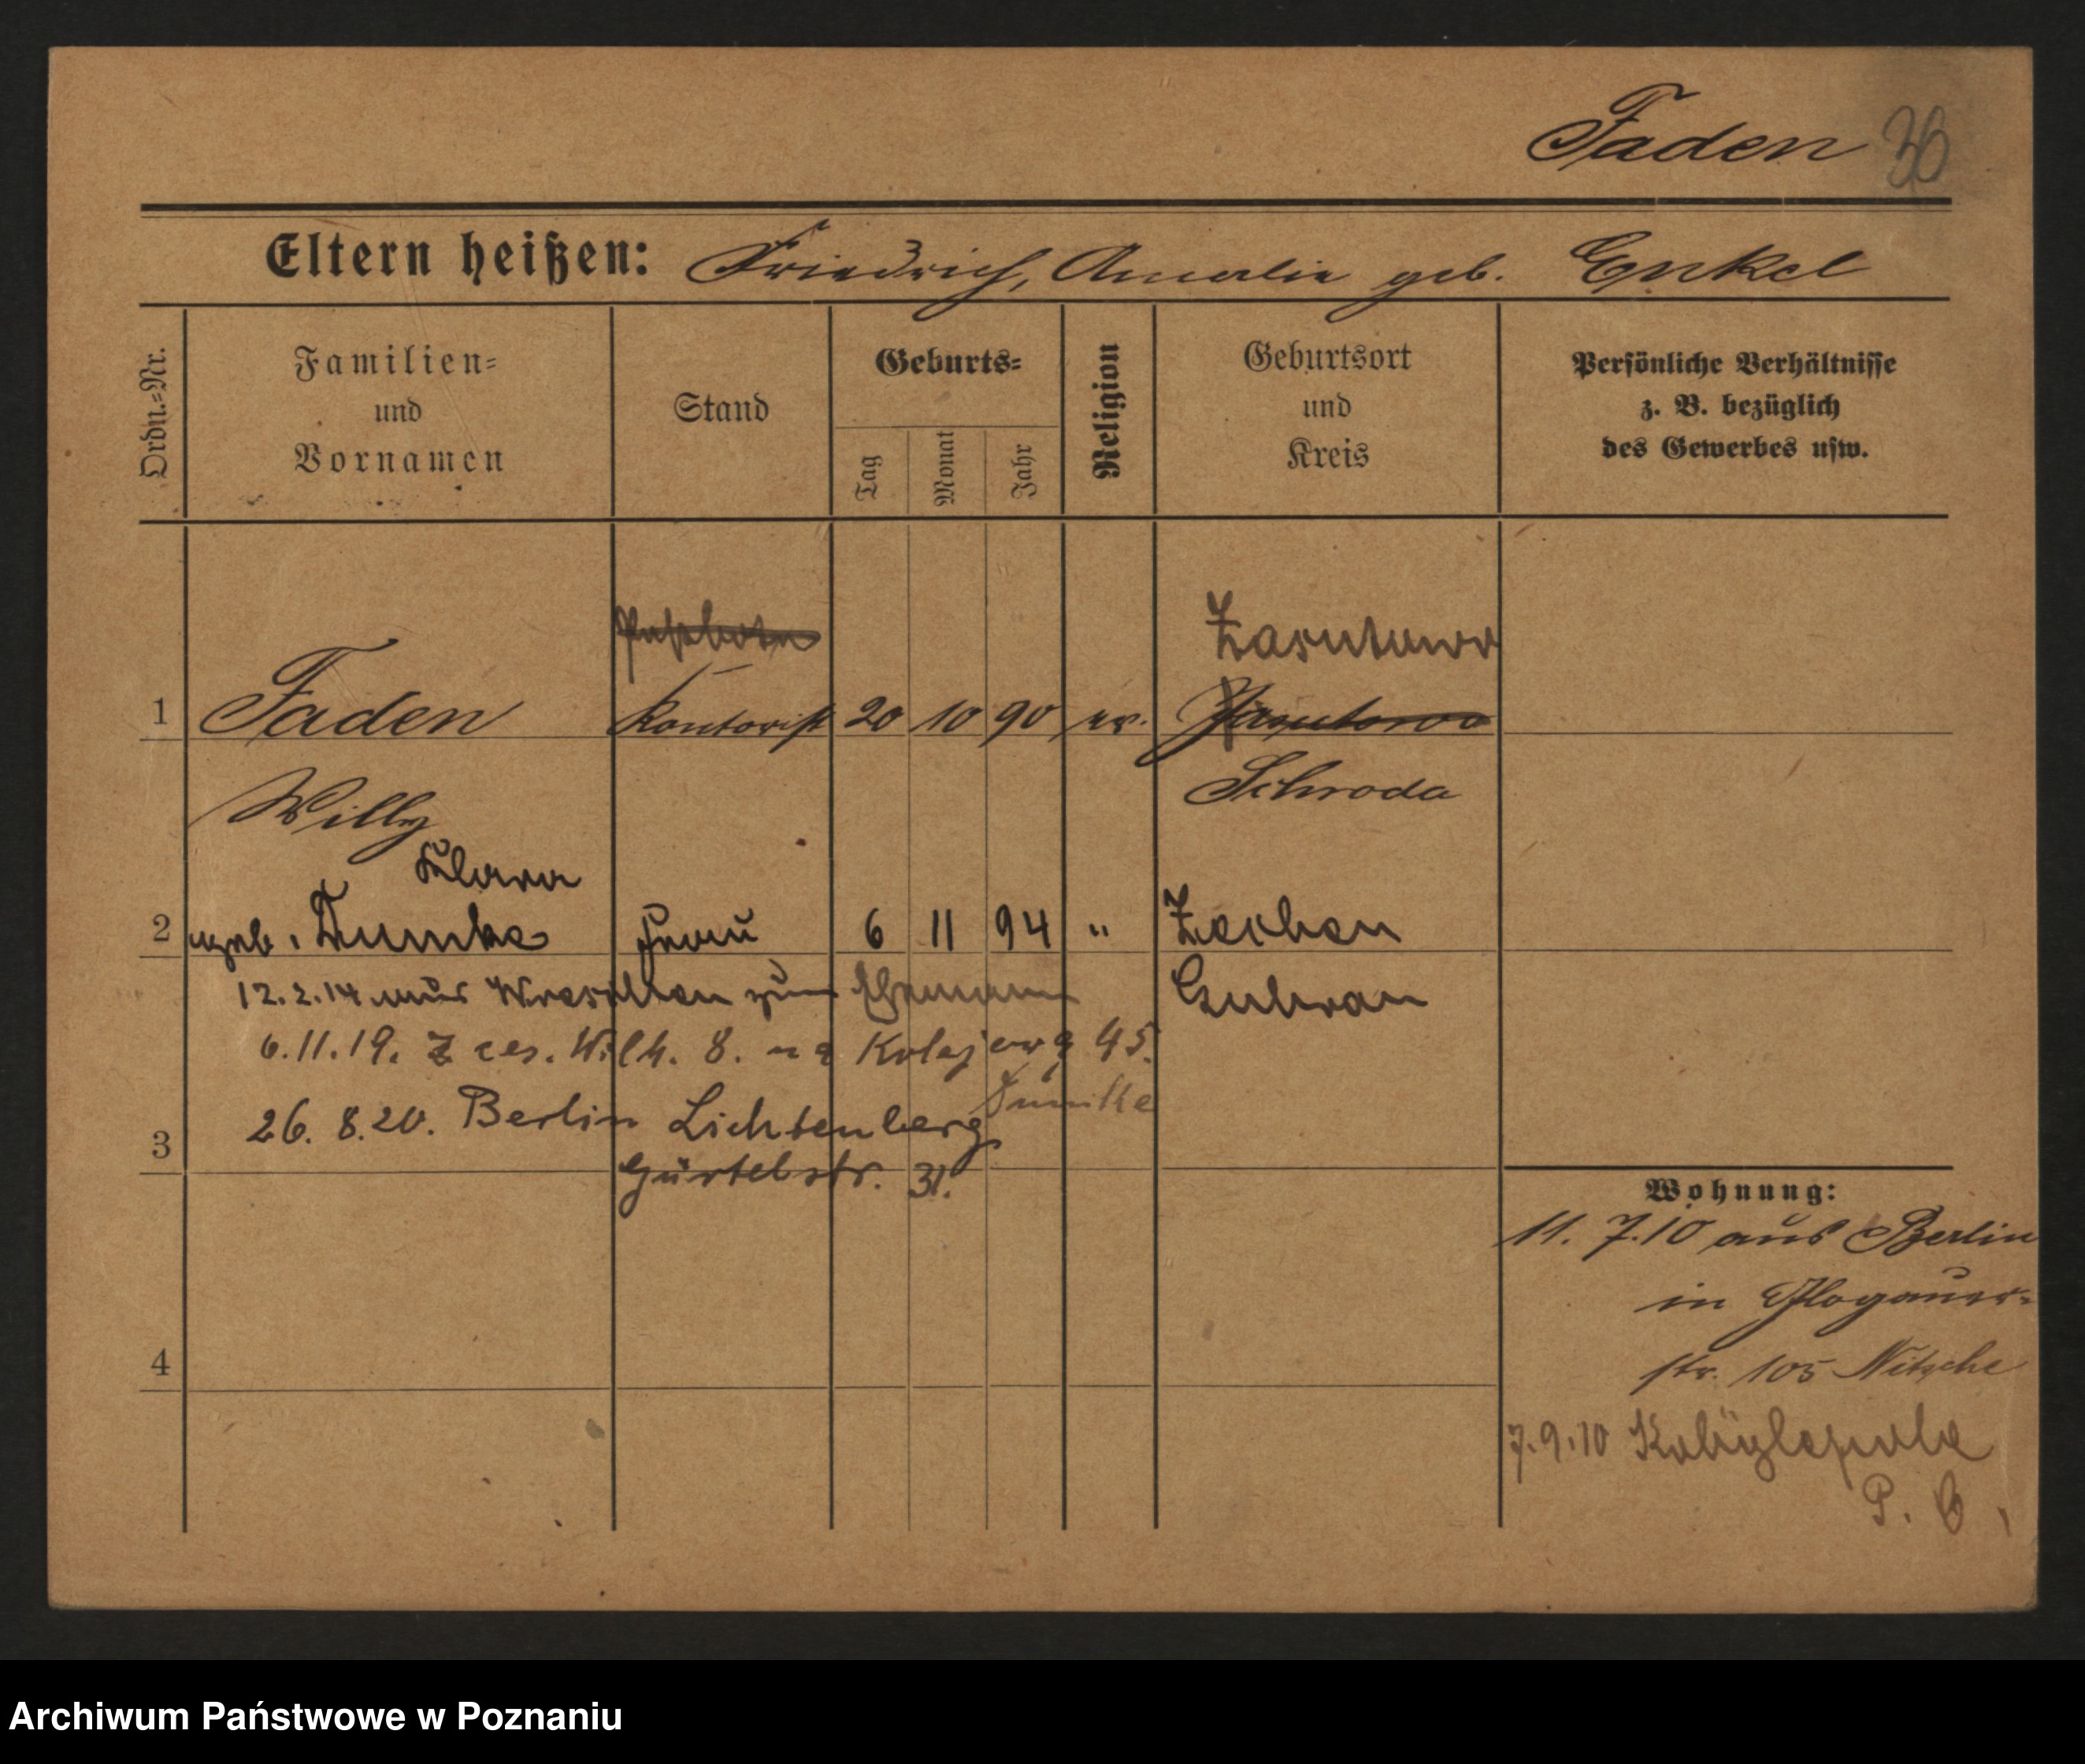 Faden 36
Eltern heißen: Friedrich, Amalie geb. Enkel
Ordn.=Nr.
Familien=
und
Vornamen
Stand
Geburts=
Tag
Monat
Jahr
Religion
Geburtsort
und
Kreis
Persönliche Verhältnisse
z. B. bezüglich
des Gewerbes usw.
Zasutowo
1 Faden Kontorist 20 10 90 ev.
Schroda
Willy
Klara
2 geb. Dumke Frau 6 11 94 " Zechen
12.2.14 aus Wreschen zum Ehemann Guhrau
6.11.19. Z ces. Wilh. 8. na Kolejową 45.
Dumke
26. 8.20. Berlin Lichtenberg
3
Gürtelstr. 31.
Wohnung:
11. 7.10 aus Berlin
in Glogauer=
4 str. 105 Nitsche
7.9.10 Kobylepole
P. O.
Archiwum Państwowe w Poznaniu